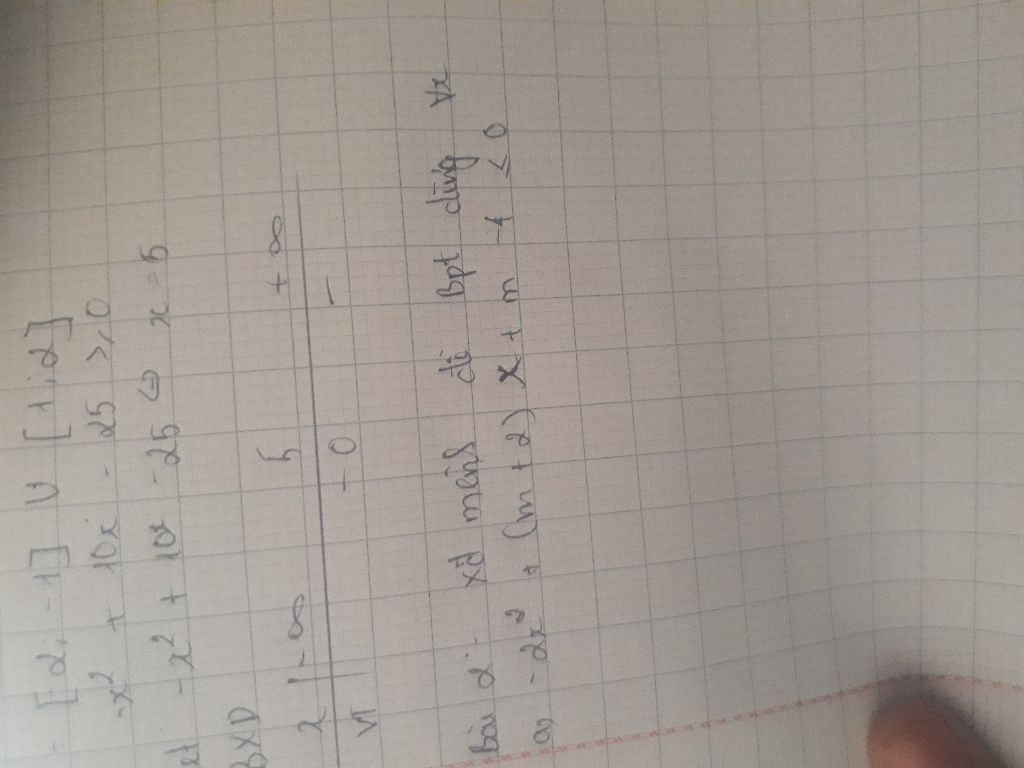 = [2; -1] U [1; 2]
-x² + 10x - 25 ≥ 0
-x² + 10x - 25 ⇔ x = 5
BXD
x | -∞ 5 + ∞
VT - 0 -
Bài 2: xđ để Bpt đúng ∀x
a, -2x² + (m + 2) x + m - 4 ≤ 0